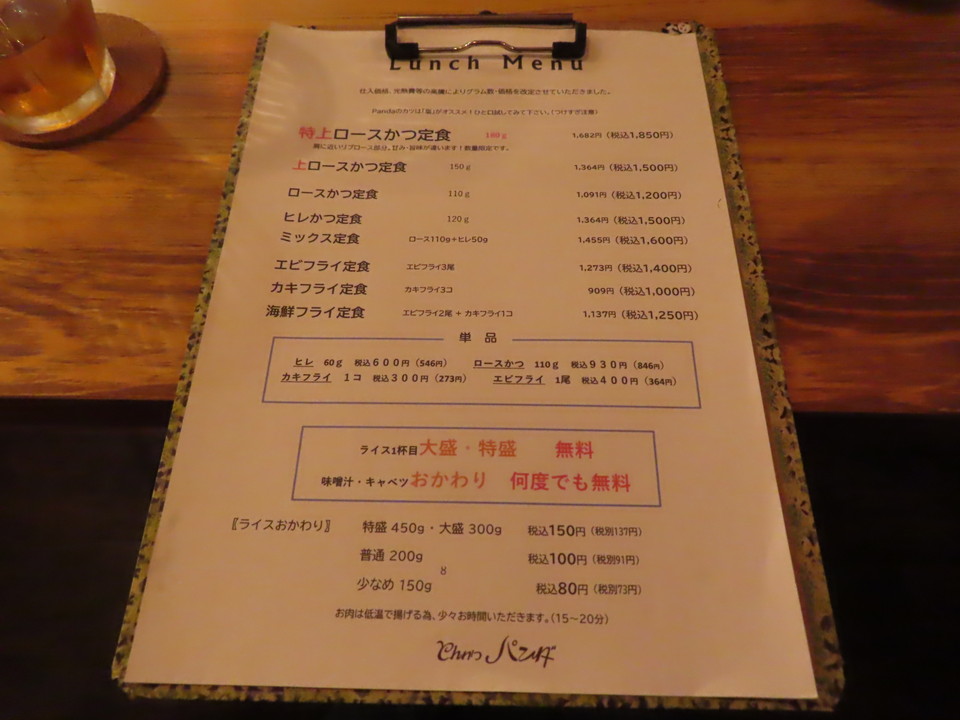 Lunch Menu
仕入価格、光熱費等の高騰によりグラム数・価格を改定させていただきました。
Pandaのカツは「塩」がオススメ！ひと口試してみて下さい。（つけすぎ注意）
特上ロースかつ定食 180g 1,682円（税込1,850円）
肩に近いリブロース部分。甘み・旨味が違います！数量限定です。
上ロースかつ定食 150g 1,364円（税込1,500円）
ロースかつ定食 110g 1,091円（税込1,200円）
ヒレかつ定食 120g 1,364円（税込1,500円）
ミックス定食 ロース110g+ヒレ50g 1,455円（税込1,600円）
エビフライ定食 エビフライ3尾 1,273円（税込1,400円）
カキフライ定食 カキフライ3コ 909円（税込1,000円）
海鮮フライ定食 エビフライ2尾 + カキフライ1コ 1,137円（税込1,250円）
単 品
ヒレ 60g 税込600円（546円） ロースかつ 110g 税込930円（846円）
カキフライ 1コ 税込300円（273円） エビフライ 1尾 税込400円（364円）
ライス1杯目大盛・特盛 無料
味噌汁・キャベツおかわり 何度でも無料
〖ライスおかわり〗 特盛 450g・大盛 300g 税込150円（税別137円）
普通 200g 税込100円（税別91円）
8
少なめ 150g 税込80円（税別73円）
お肉は低温で揚げる為、少々お時間いただきます。（15～20分）